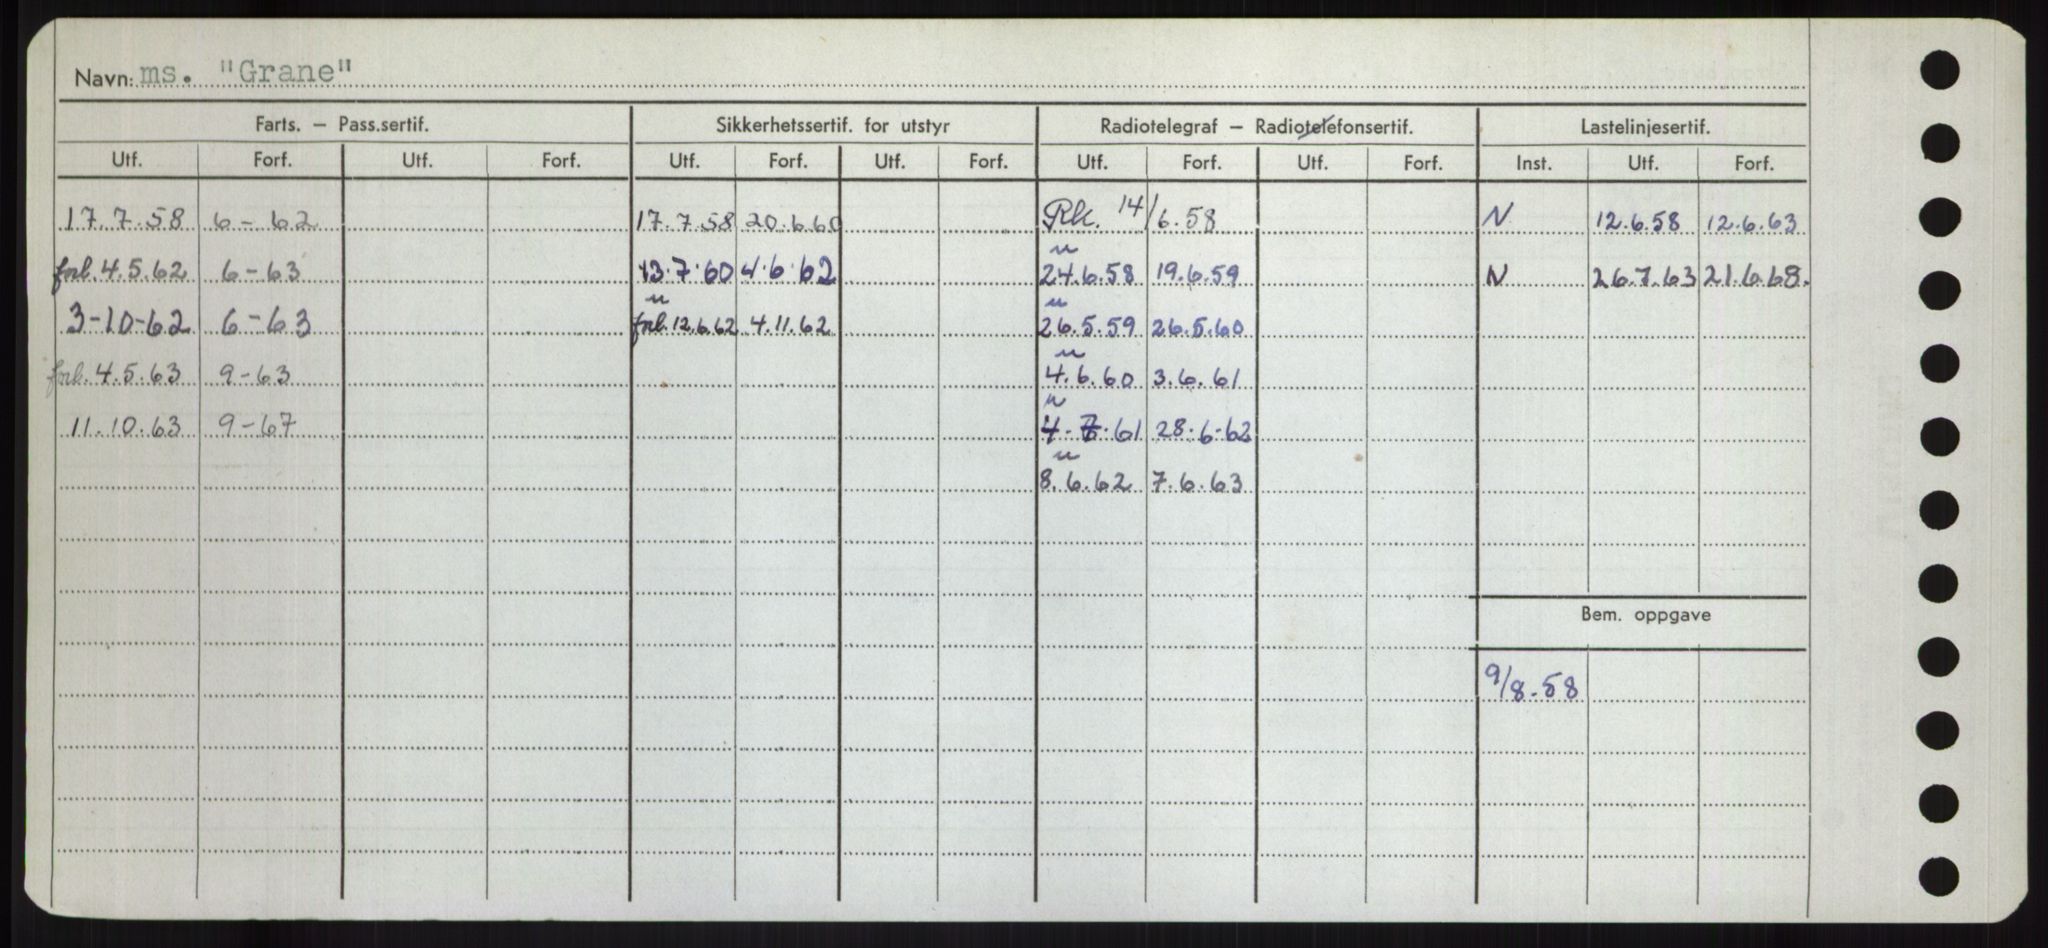 Navn: ms. "Grane"
Farts. – Pass.sertif. Sikkerhetssertif. for utstyr Radiotelegraf – Radiotelefonsertif. Lastelinjesertif.
Utf. Forf. Utf. Forf. Utf. Forf. Utf. Forf. Utf. Forf. Utf. Forf. Inst. Utf. Forf.
17.7.58 6-62 17.7.58 20.6.60 Rk. 14/6.58 N 12.6.58 12.6.63
forl. 4.5.62 6-63 13.7.60 4.6.62 " 24.6.58 19.6.59 N 26.7.63 21.6.68.
3-10-62 6-63 " forl. 12.6.62 4.11.62 " 26.5.59 26.5.60
forl. 4.5.63 9-63 " 4.6.60 3.6.61
11.10.63 9-67 " 4.7.61 28.6.62
" 8.6.62 7.6.63
Bem. oppgave
9/8.58